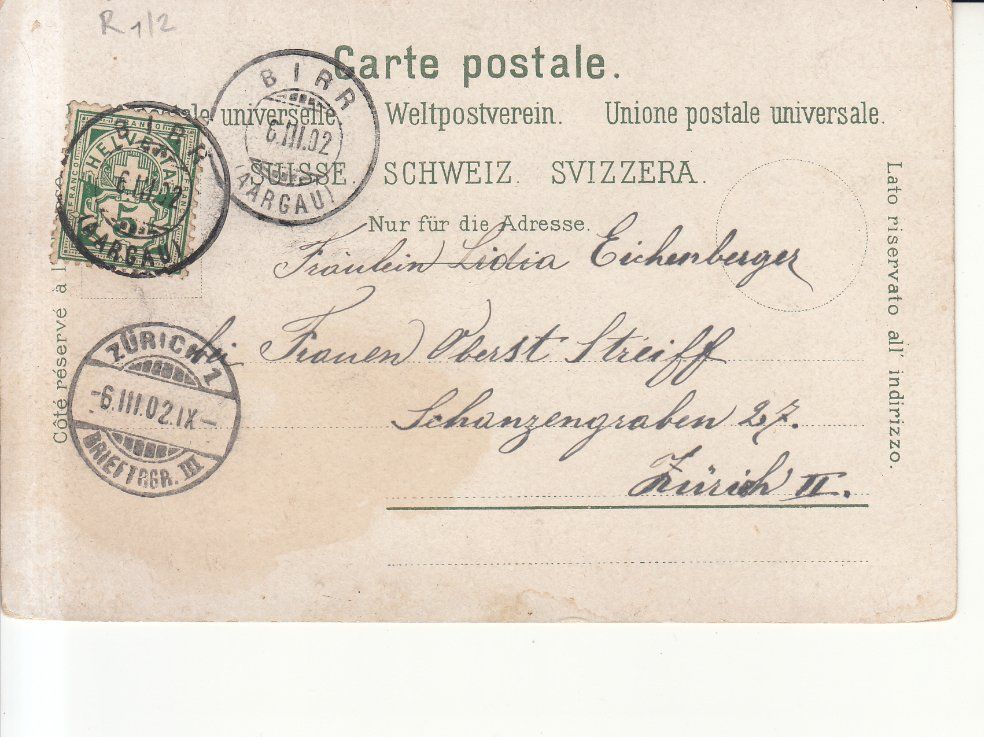 R 1/2
Carte postale.
postale universelle. Weltpostverein. Unione postale universale.
SUISSE. SCHWEIZ. SVIZZERA.
Nur für die Adresse.
BIRR
6.III.02
(AARGAU)
BIRR
6.III.02
(AARGAU)
HELVETIA
FRANCO
5
Fräulein Lidia Eichenberger
bei Frauen Oberst Streiff
Schanzengraben 27.
Zürich II.
ZÜRICH 1
-6.III.02.IX-
BRIEFTRGR. III
Côté réservé à l
Lato riservato all' indirizzo.